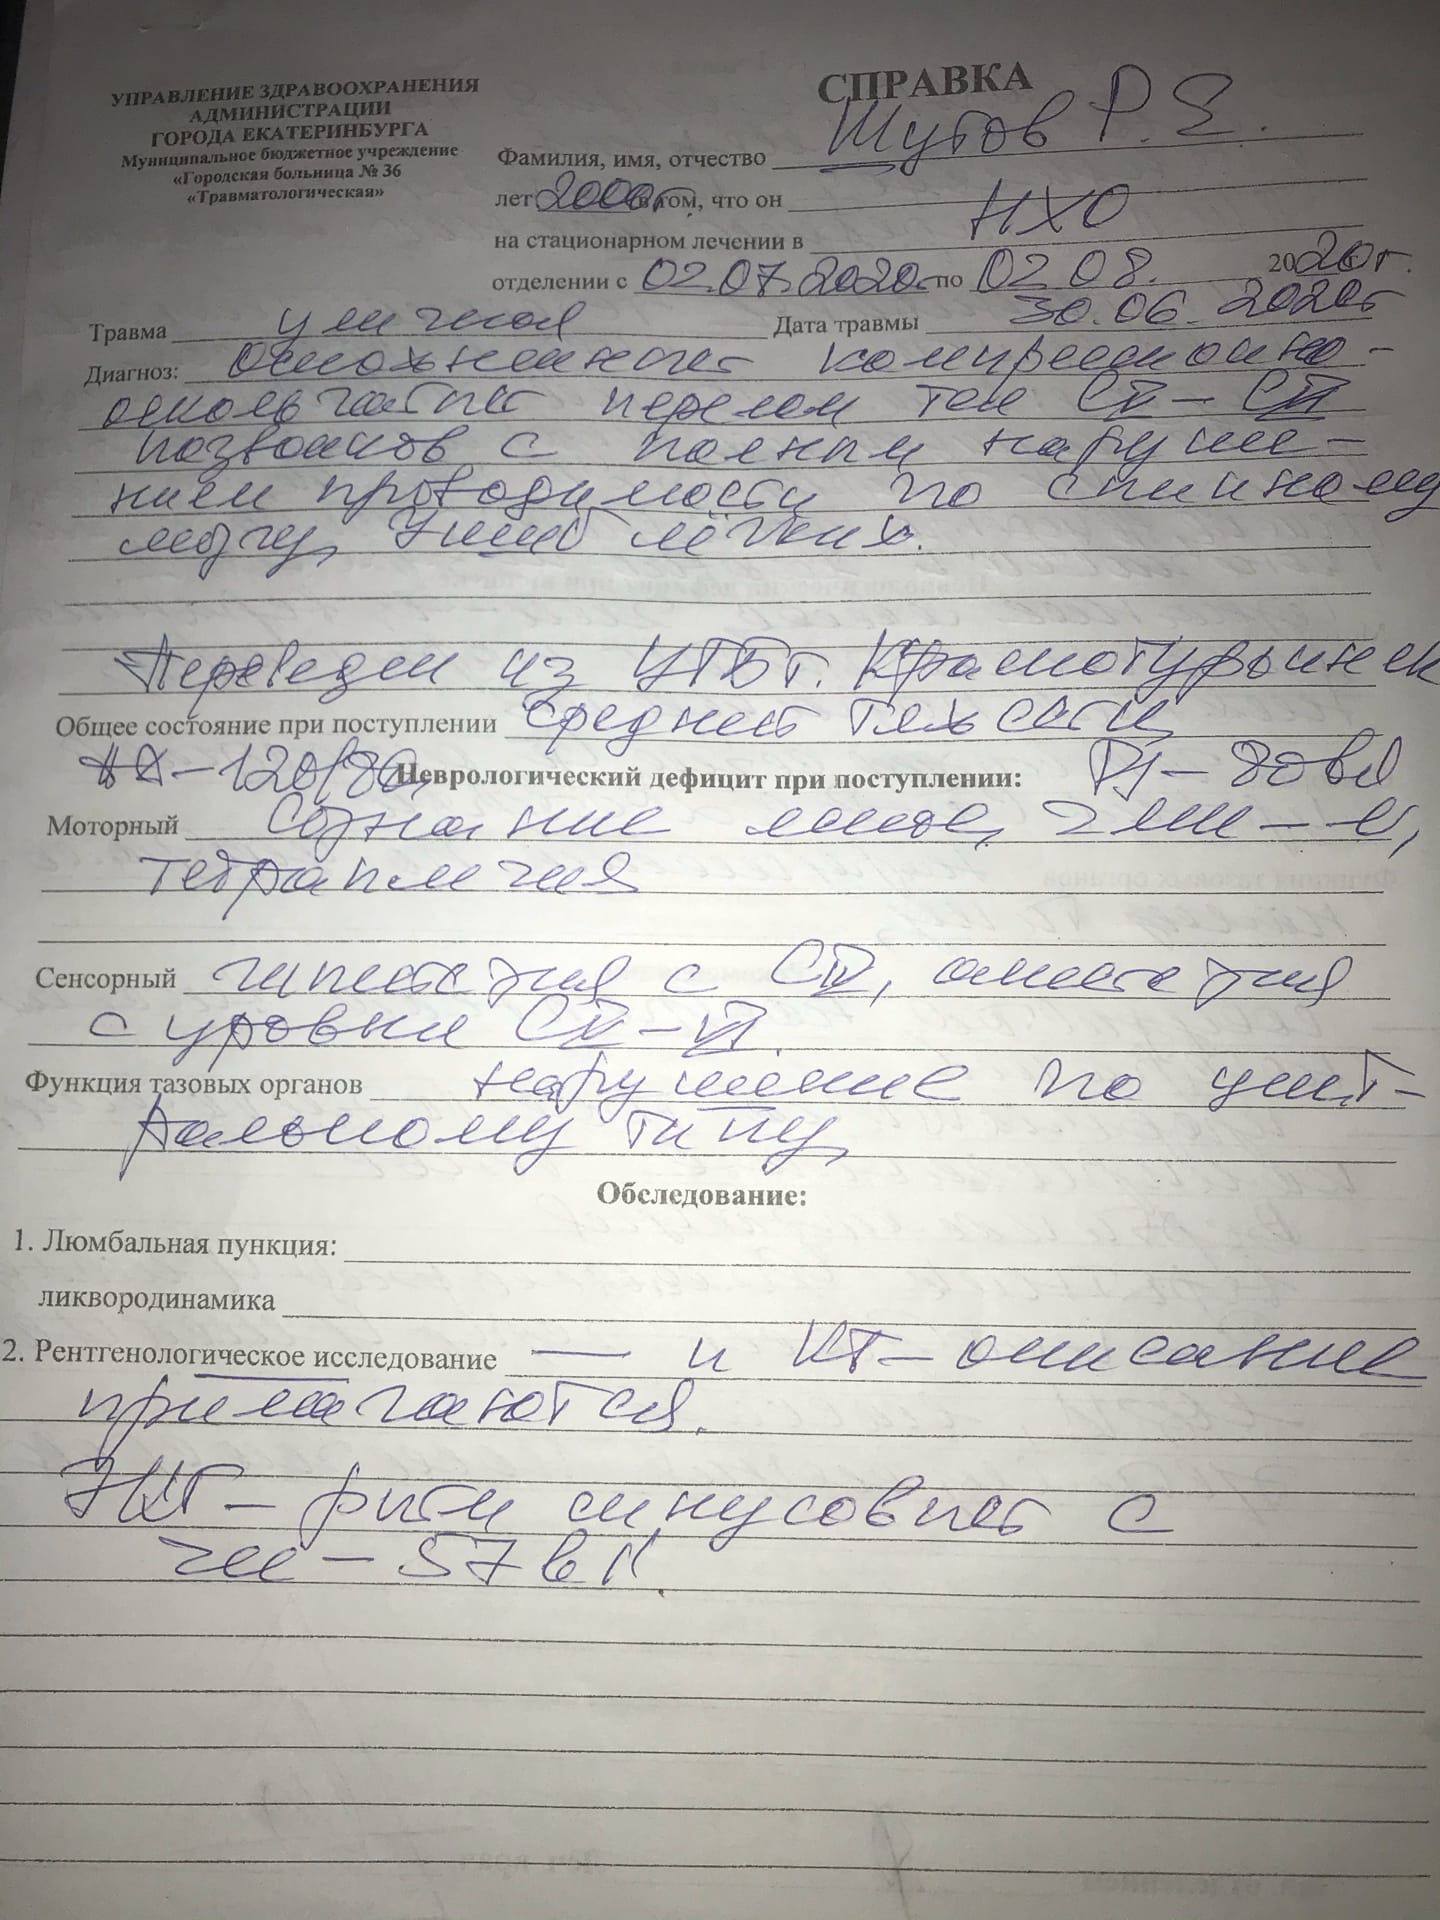 УПРАВЛЕНИЕ ЗДРАВООХРАНЕНИЯ
АДМИНИСТРАЦИИ
ГОРОДА ЕКАТЕРИНБУРГА
Муниципальное бюджетное учреждение
«Городская больница № 36
«Травматологическая»
СПРАВКА
Фамилия, имя, отчество Шутов Р. Е.
лет 2000г. в том, что он
на стационарном лечении в НХО
отделении с 02.07.2020г. по 02 08. 2020г.
Травма уличная Дата травмы 30.06.2020г
Диагноз: Осложненный компрессионно-
оскольчатый перелом тел CV – CVI
позвонков с полным наруше-
нием проводимости по спинному
мозгу, Ушиб лёгких.
Переведен из ЦГБ г. Краснотурьинск
Общее состояние при поступлении средней тяжести
АД – 120/80, Ps – 80 в 1
Неврологический дефицит при поступлении:
Моторный Сознание ясное, ЧМН – N,
тетраплегия
Сенсорный гипестезия с CIV, анестезия
с уровня CV – VI.
Функция тазовых органов нарушение по цент-
ральному типу,
Обследование:
1. Люмбальная пункция:
ликвородинамика
2. Рентгенологическое исследование — и КТ – описание
прилагаются.
ЭКГ – ритм синусовый с
чсс – 57 в 1.